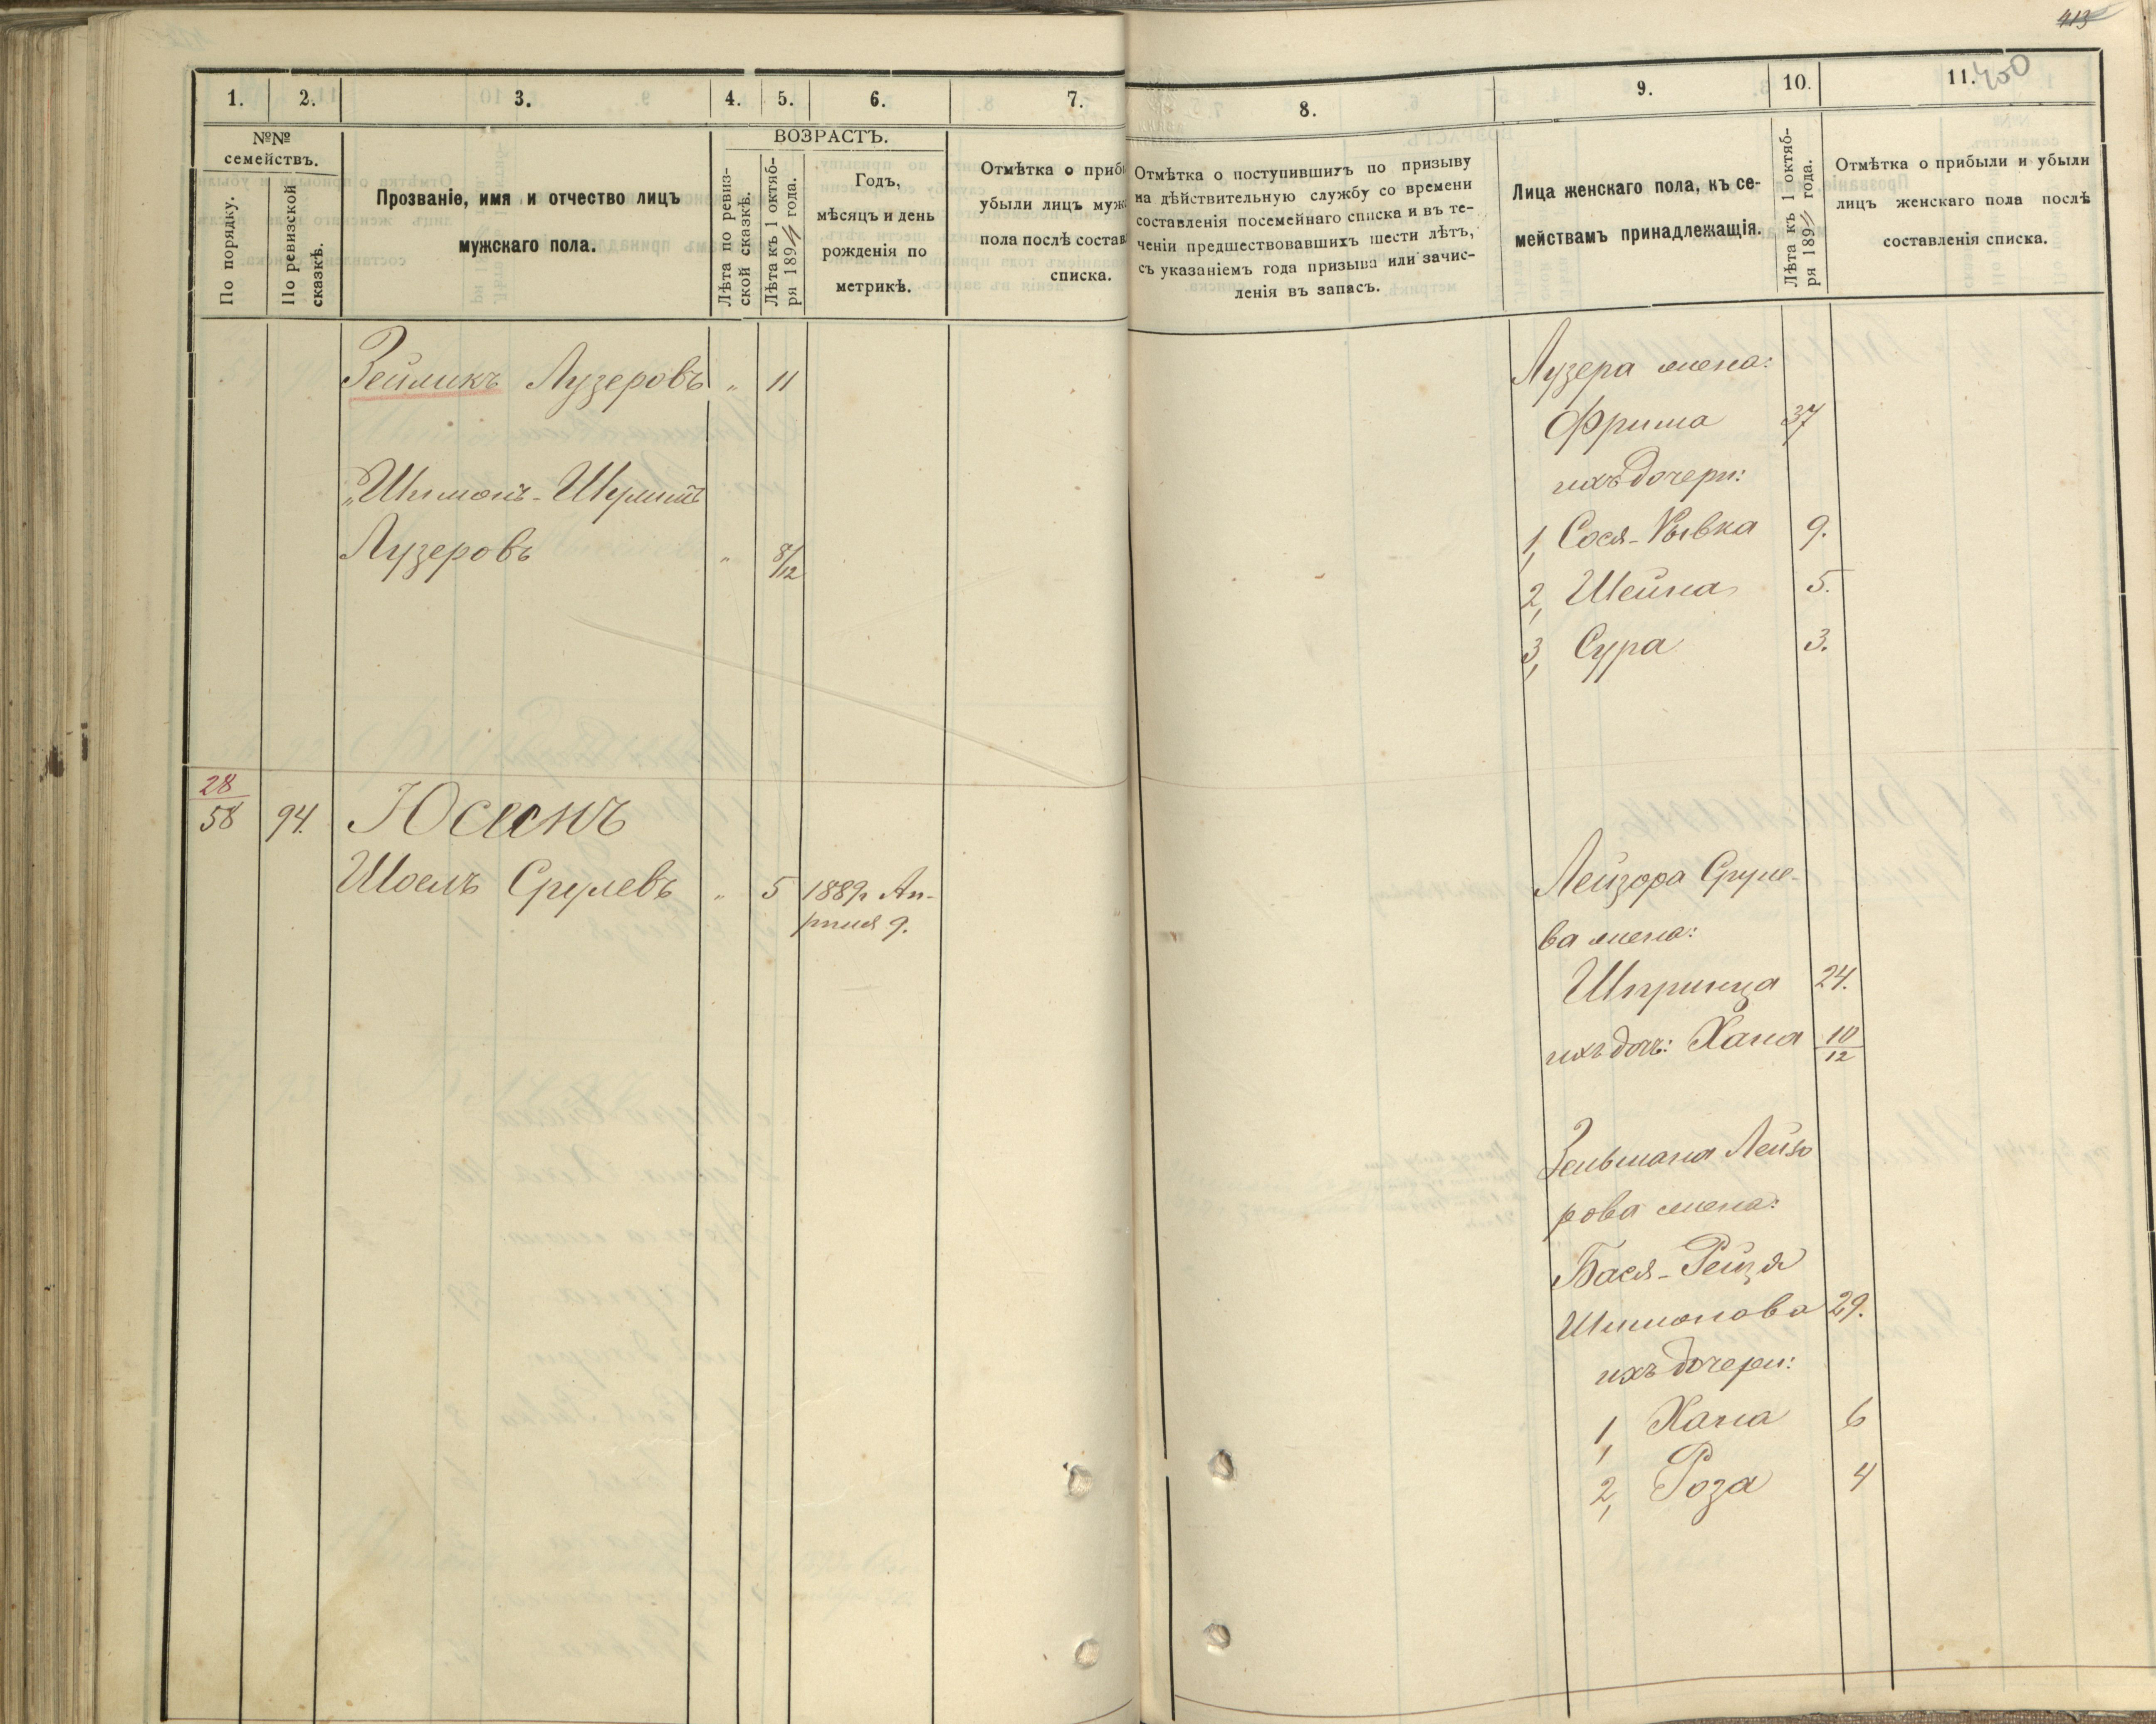 413
400
1.
2.
3.
4.
5.
6.
7.
№№
семействъ.
По порядку.
По ревизской
сказкѣ.
Прозваніе, имя и отчество лицъ
мужскаго пола.
Лѣта по ревиз-
ской сказкѣ.
ВОЗРАСТЪ.
Лѣта къ 1 октяб-
ря 1894 года.
Годъ,
мѣсяцъ и день
рожденія по
метрикѣ.
Отмѣтка о прибы
убыли лицъ мужс
пола послѣ состав
списка.
Зейликъ Лузеровъ „ 11
„Шимонъ-
Лузеровъ „ 8/12
28
58 94. Юсемъ
Шоелъ Срулевъ „ 5 1889 г. Ап-
рѣля 9.
8.
9.
10.
11.
Отмѣтка о поступившихъ по призыву
на дѣйствительную службу со времени
составленія посемейнаго списка и въ те-
ченіи предшествовавшихъ шести лѣтъ,
съ указаніемъ года призыва или зачис-
ленія въ запасъ.
Лица женскаго пола, къ се-
мействамъ принадлежащія.
Лѣта къ 1 октяб-
ря 1894 года.
Отмѣтка о прибыли и убыли
лицъ женскаго пола послѣ
составленія списка.
Лузера жена:
Фрима 37
ихъ дочери:
1, Сося-Рывка 9.
2, Шейна 5.
3, Сура 3.
Лейзора Сруле-
ва жена:
Шпринца 24.
ихъ дочь: Хана 10/12
Зельмана Лейзо
рова жена:
Бася-Рейзя
Шимонова 29.
ихъ дочери:
1, Хана 6
2, Роза 4